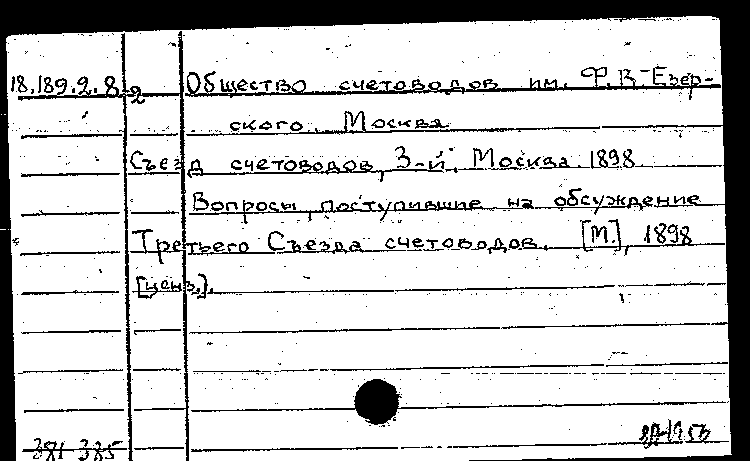 18.189.2.8 2 Общество счетоводов им. Ф.В. Езер-
ского. Москва
Съезд счетоводов, 3-й. Москва. 1898
Вопросы, поступившие на обсуждение
Третьего Съезда счетоводов. [М.], 1898
[ценз.].
381 385